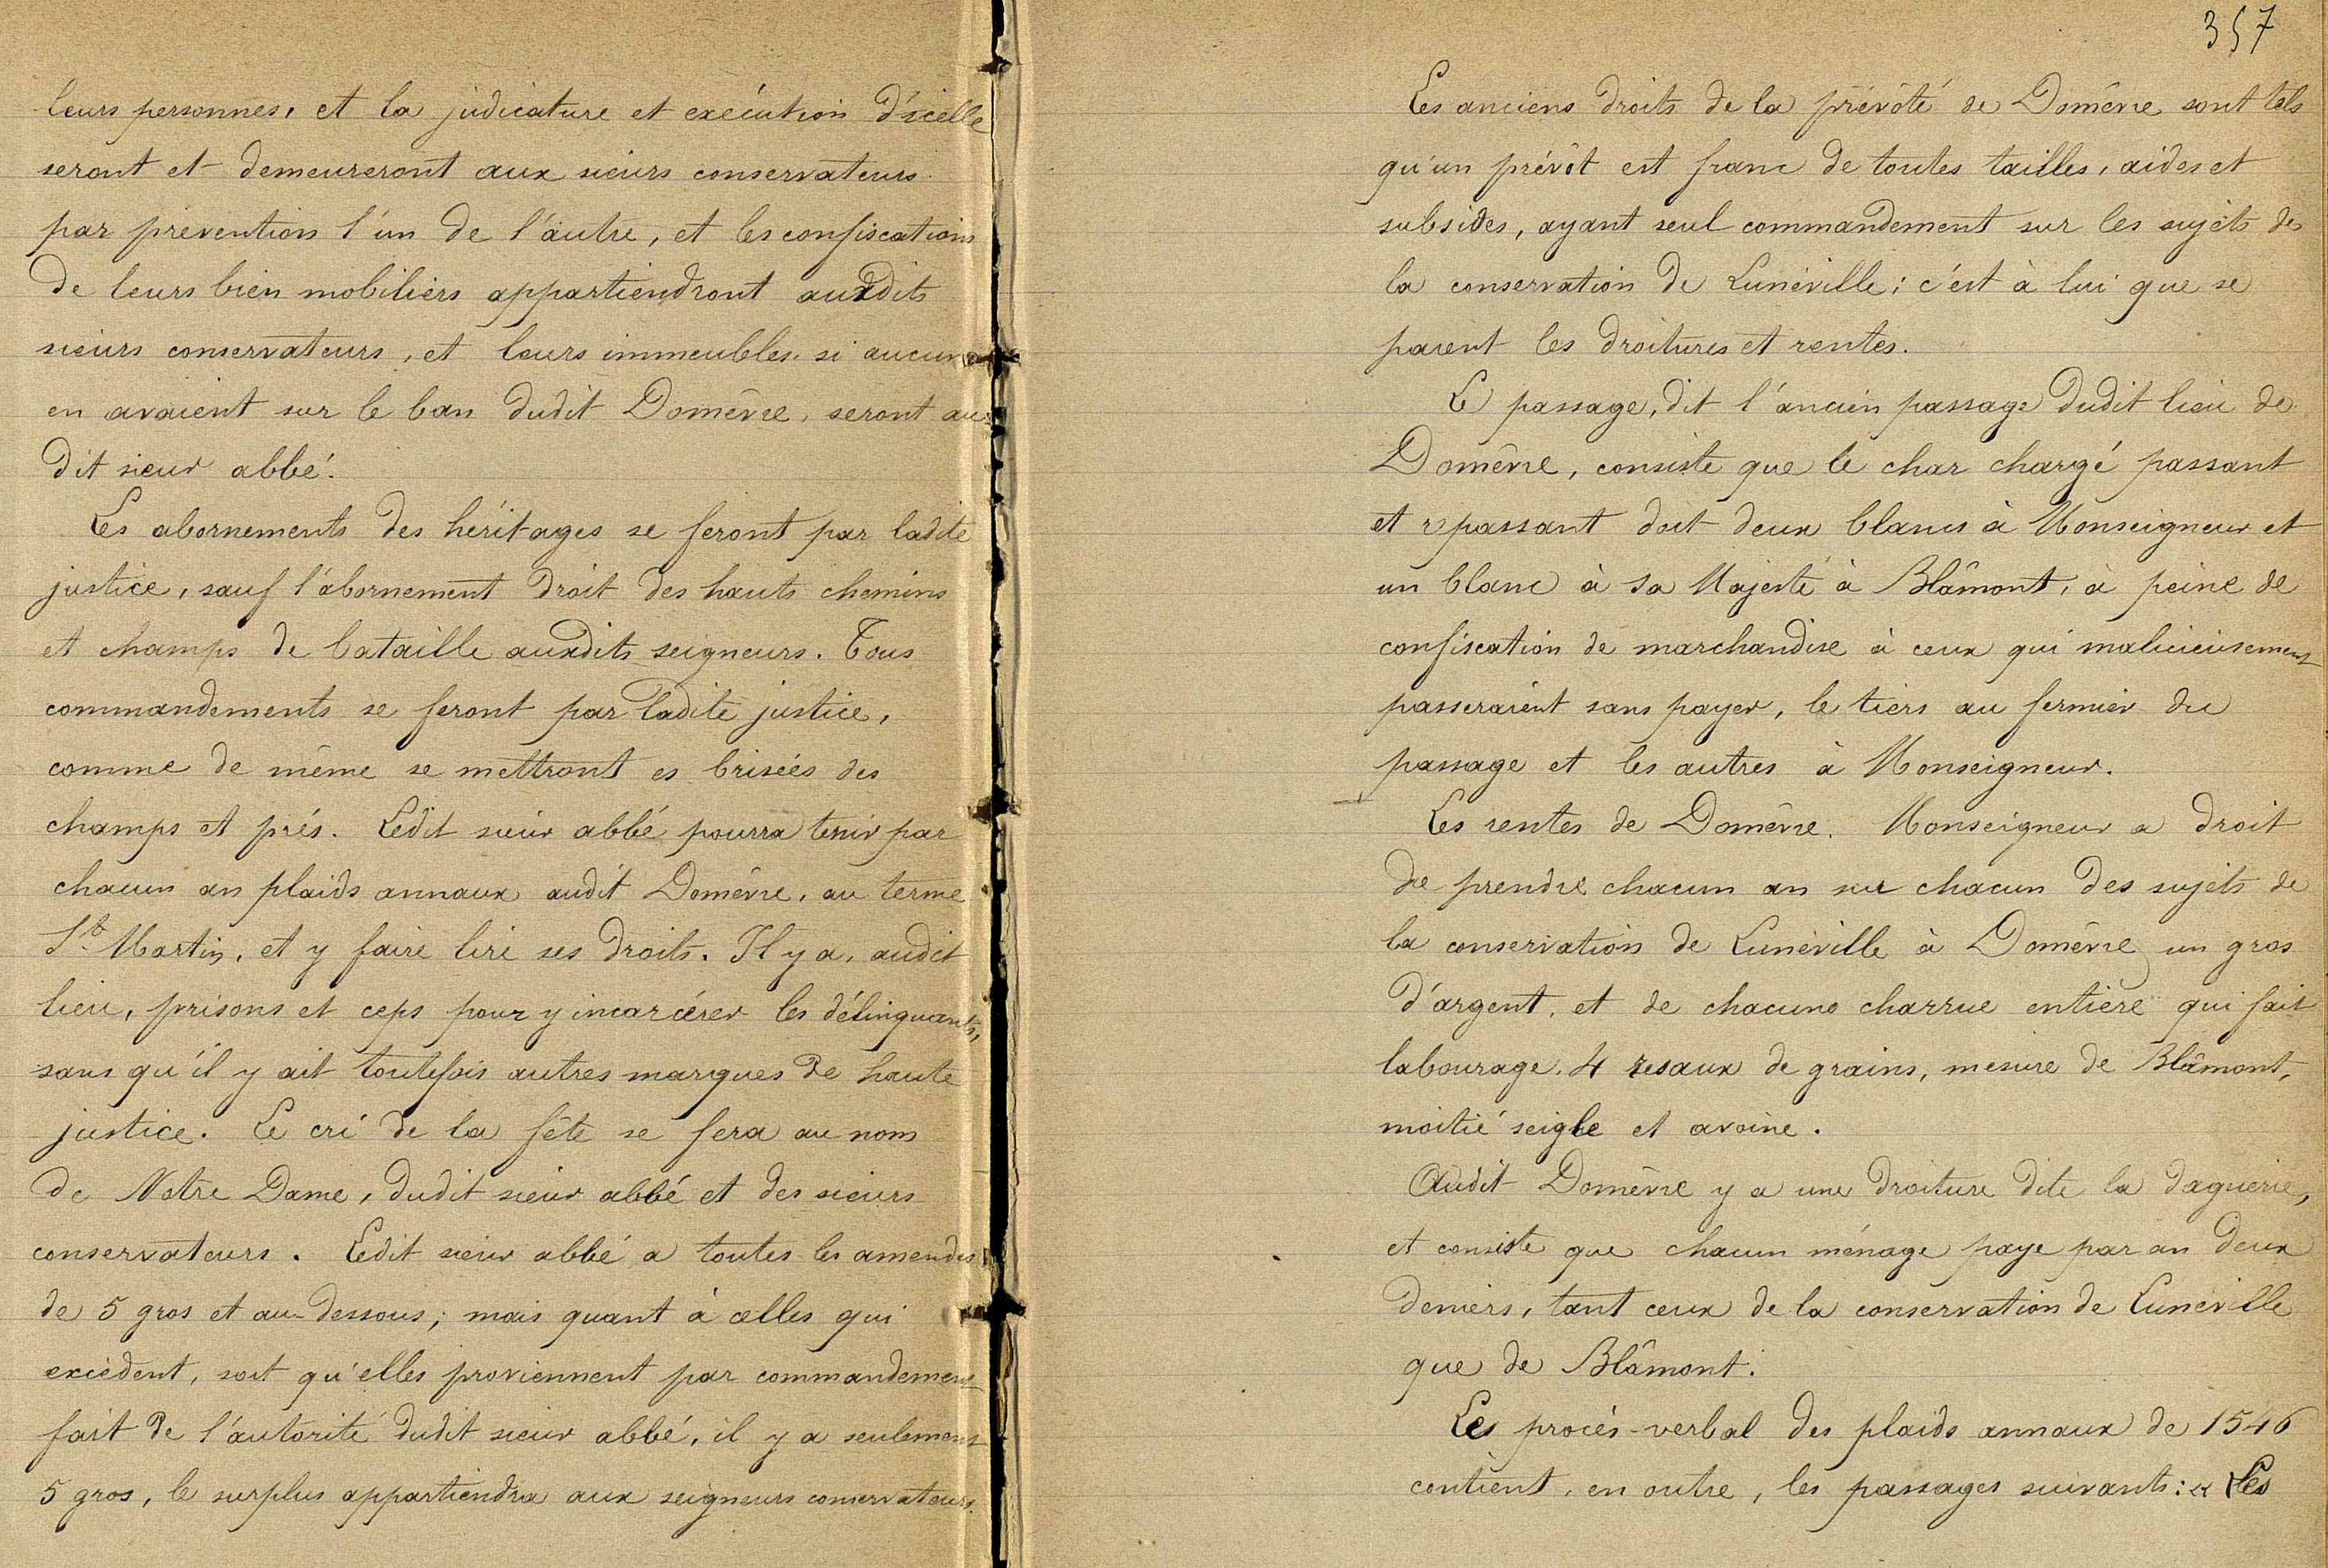 leurs personnes, et la judicature et exécution d'icelle
seront et demeureront aux sieurs conservateurs
par prévention l'un de l'autre, et les confiscations
de leurs bien mobiliers appartiendront auxdits
sieurs conservateurs, et leurs immeubles si aucuns
en avaient sur le ban dudit Domêvre, seront au
dit sieur abbé.
Les abornements des héritages se feront par ladite
justice, sauf l'abornement droit des hauts chemins
et champs de bataille auxdits seigneurs. Tous
commandements se feront par ladite justice,
comme de même se mettront es brisées des
champs et prés. Ledit sieur abbé pourra tenir par
chacun an plaids annaux audit Domêvre, au terme
St Martin, et y faire lire ses droits. Il y a, audit
lieu, prisons et ceps pour y incarcérer les délinquants,
sans qu'il y ait toutefois autres marques de haute
justice. Le cri de la fête se fera au nom
de Notre Dame, dudit sieur abbé et des sieurs
conservateurs. Ledit sieur abbé a toutes les amendes
de 5 gros et au-dessous; mais quant à celles qui
excèdent, soit qu'elles proviennent par commandement
fait de l'autorité dudit sieur abbé, il y a seulement
5 gros, le surplus appartiendra aux seigneurs conservateurs.
357
Les anciens droits de la prévôté de Domêvre sont tels
qu'un prévôt est franc de toutes tailles, aides et
subsides, ayant seul commandement sur les sujets de
la conservation de Lunéville; c'est à lui que se
paient les droitures et rentes.
Le passage, dit l'ancien passage dudit lieu de
Domêvre, consiste que le char chargé passant
et repassant doit deux blancs à Monseigneur et
un blanc à sa Majesté à Blâmont, à peine de
confiscation de marchandise à ceux qui malicieusement
passeraient sans payer, le tiers au fermier du
passage et les autres à Monseigneur.
Les rentes de Domêvre. Monseigneur a droit
de prendre chacun an sur chacun des sujets de
la conservation de Lunéville à Domêvre un gros
d'argent, et de chacune charrue entière qui fait
labourage, 4 resaux de grains, mesure de Blâmont,
moitié seigle et avoine.
Audit Domêvre y a une droiture dite la daguerie,
et consiste que chacun ménage paye par an deux
deniers, tant ceux de la conservation de Lunéville
que de Blâmont.
Les procès-verbal des plaids annaux de 1546
contient, en outre, les passages suivants: « Les